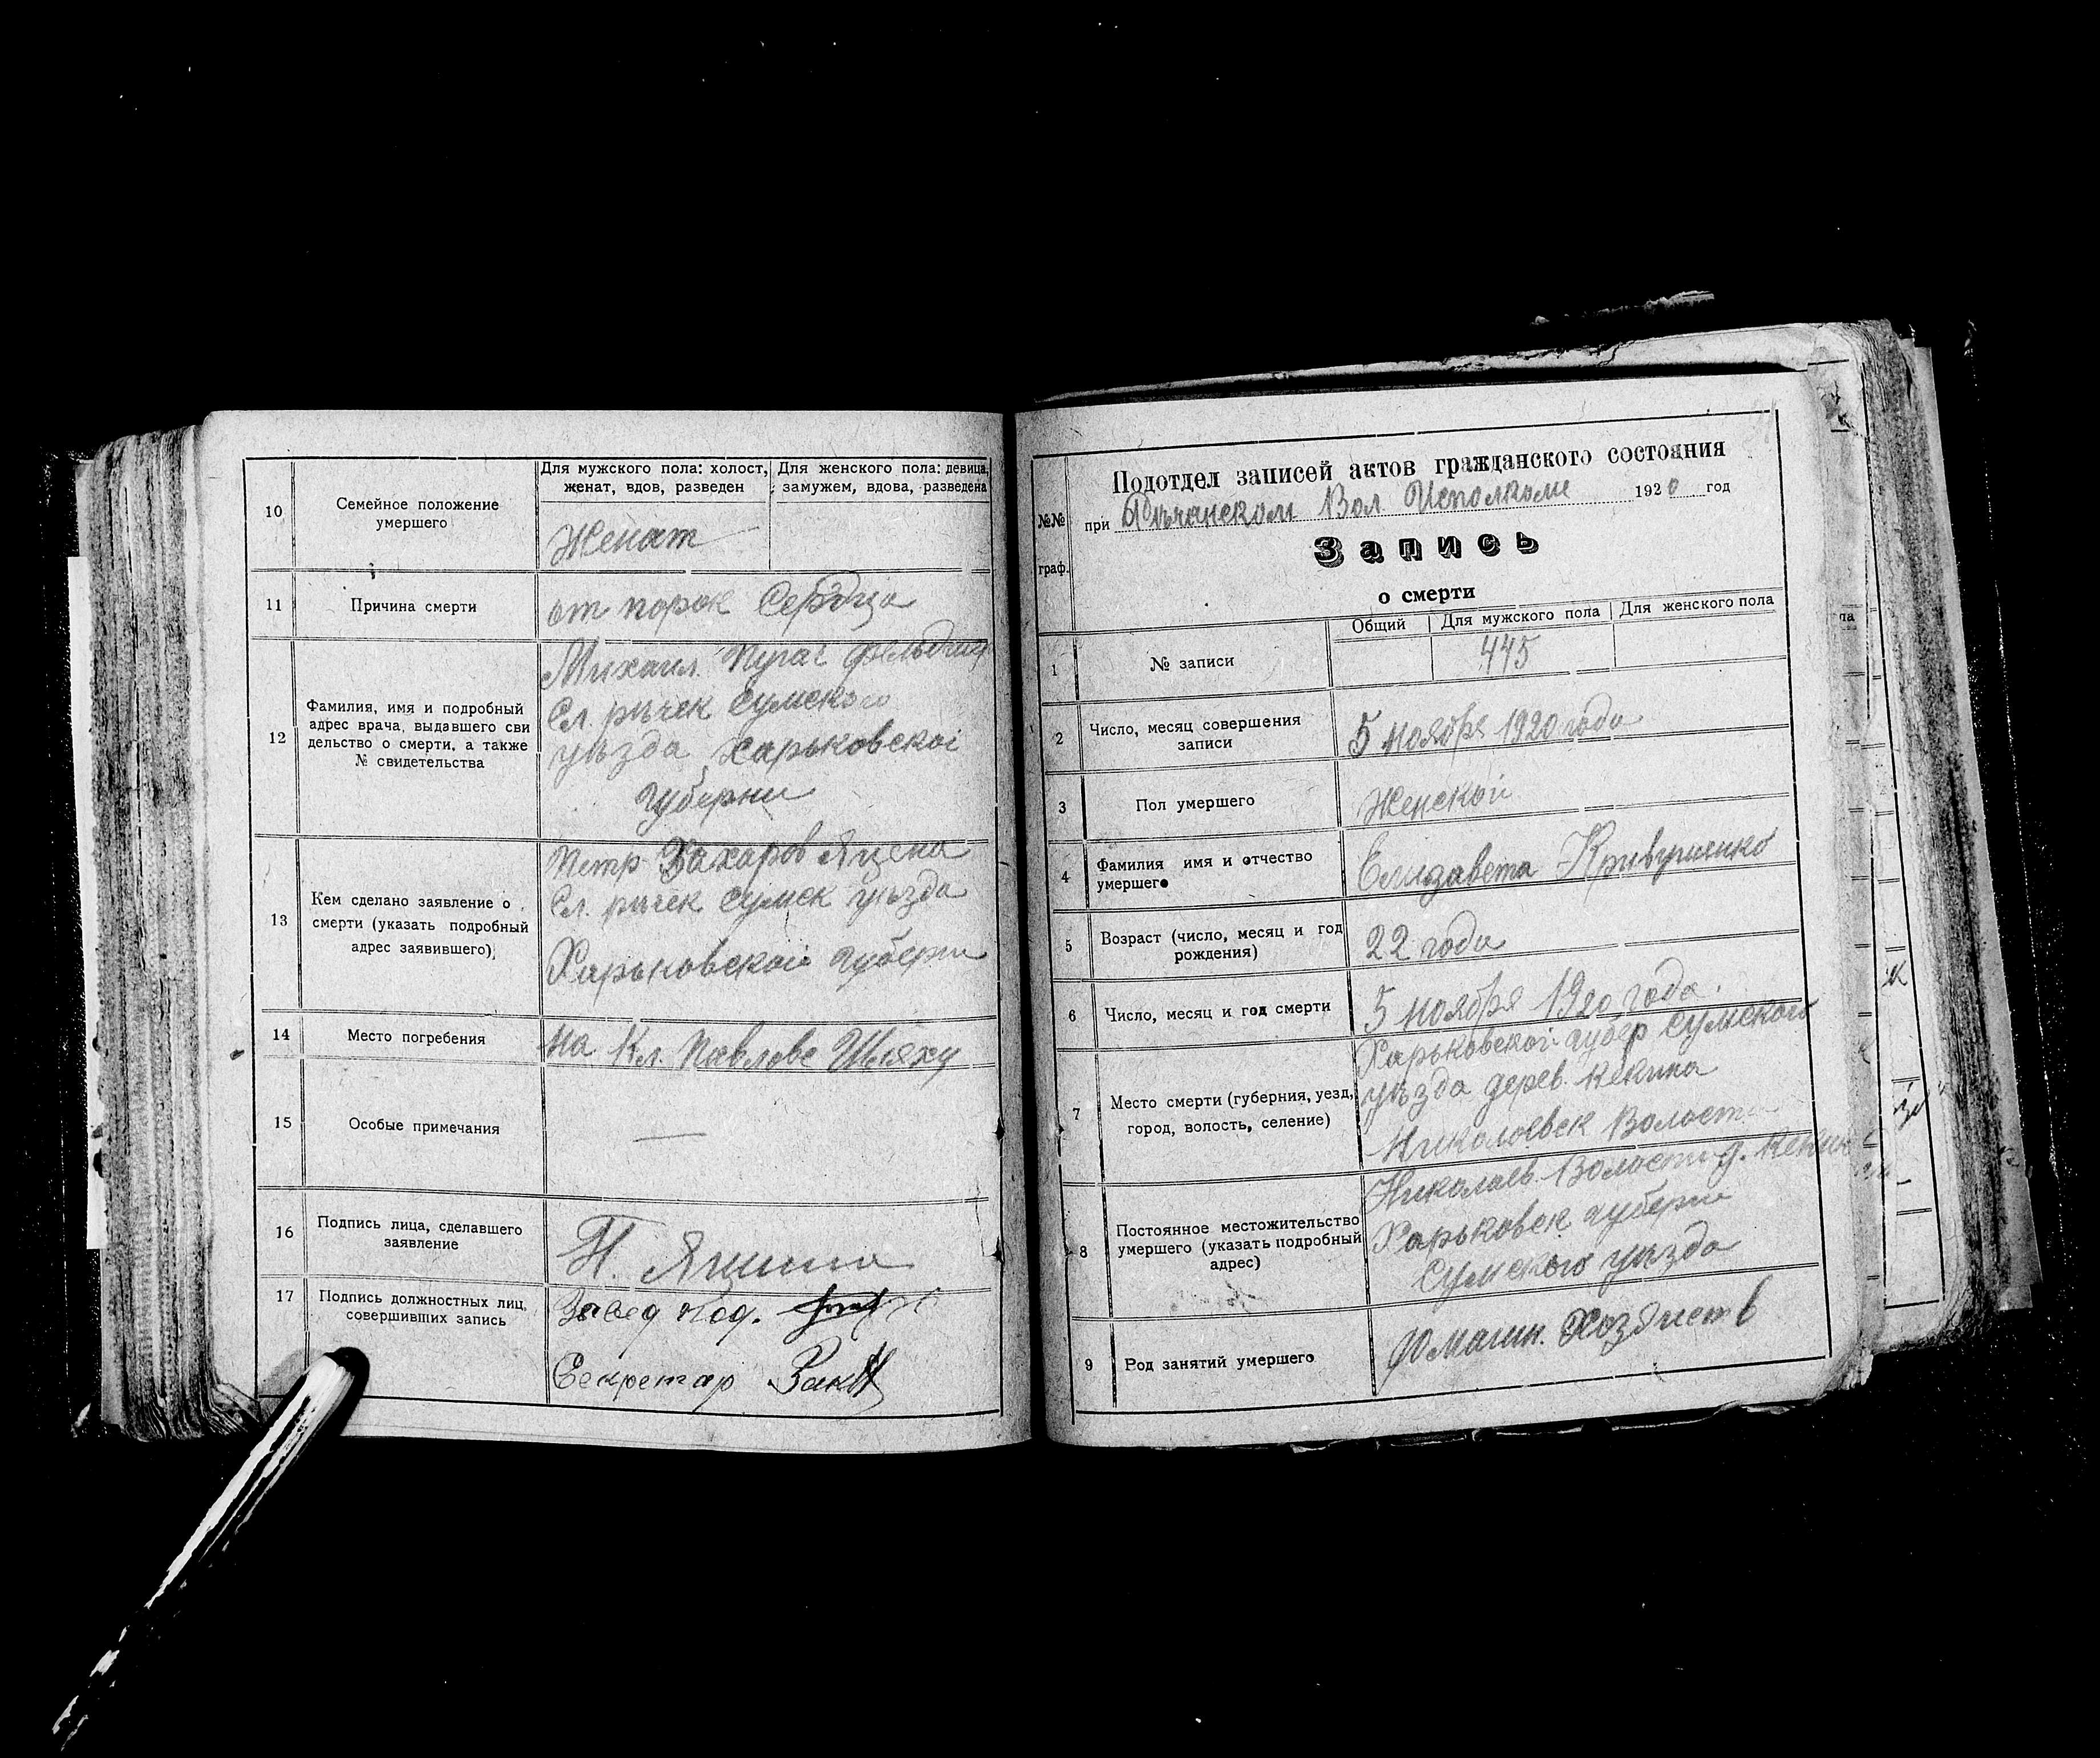 10
Семейное положение
умершего
Для мужского пола: холост,
женат, вдов, разведен
Для женского пола: девица,
замужем, вдова, разведена
Женат
11
Причина смерти
от порок Сердца
12
Фамилия, имя и подробный
адрес врача, выдавшего сви
дельство о смерти, а также
№ свидетельства
Михаил Пугач
Сл. рѣчек Сумского
уѣзда Харьковскоі
Губерни
13
Кем сделано заявление о
смерти (указать подробный
адрес заявившего)
Петр Захаров Яцена
Сл. рѣчек Сумск уѣзда
Харьковскоі Губерни
14
Место погребения
на Кл. Павлове Шляху
15
Особые примечания
—
16
Подпись лица, сделавшего
заявление
17
Подпись должностных лиц,
совершивших запись
Завед под.
Секретар
№№
граф.
Подотдел записей актов гражданского состояния
при Рѣчанском Вол Исполкоме 1920 год
Запись
о смерти
Общий
Для мужского пола
Для женского пола
1
№ записи
445
2
Число, месяц совершения
записи
5 ноября 1920 года
3
Пол умершего
Женской
4
Фамилия имя и отчество
умершего
Елизавета Кривушенко
5
Возраст (число, месяц и год
рождения)
22 года
6
Число, месяц и год смерти
5 ноября 1920 года.
7
Место смерти (губерния, уезд,
город, волость, селение)
Харьковскоі губер Сумского
уѣзда дерев. Кекина
Николаевск Волост
8
Постоянное местожительство
умершего (указать подробный
адрес)
Николаев. Волости д. Кекин
Харьковск губерни
Сумского уѣзда
9
Род занятий умершего
Хозяиств